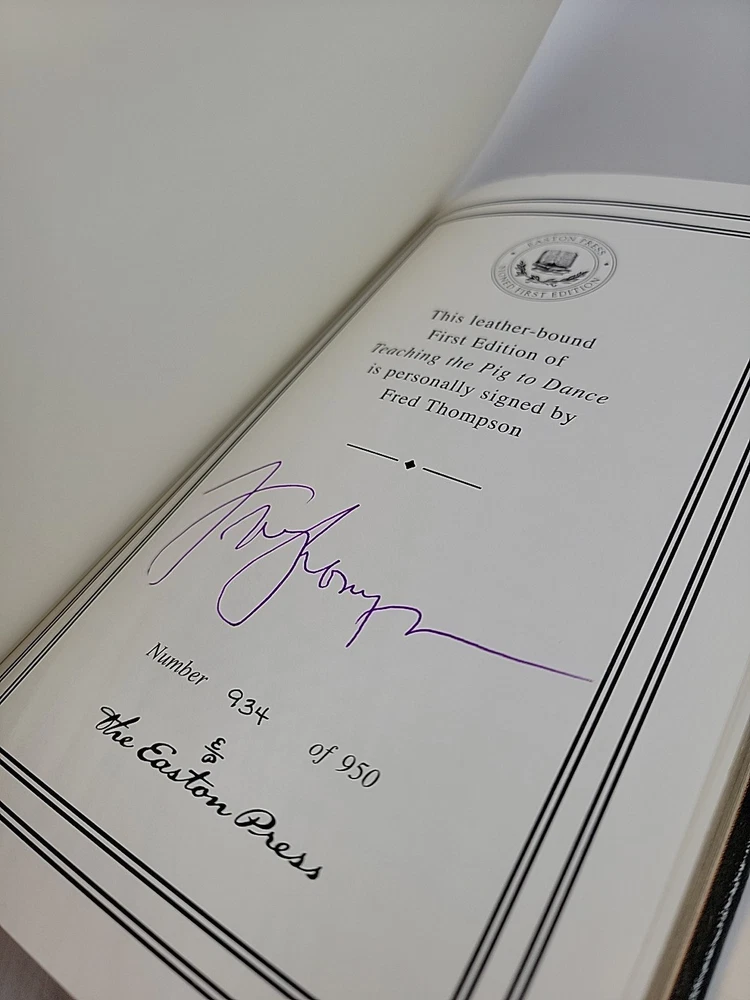 EASTON PRESS
SIGNED FIRST EDITION
This leather-bound
First Edition of
Teaching the Pig to Dance
is personally signed by
Fred Thompson
Fred Thompson
Number 934 of 950
E/P
the Easton Press